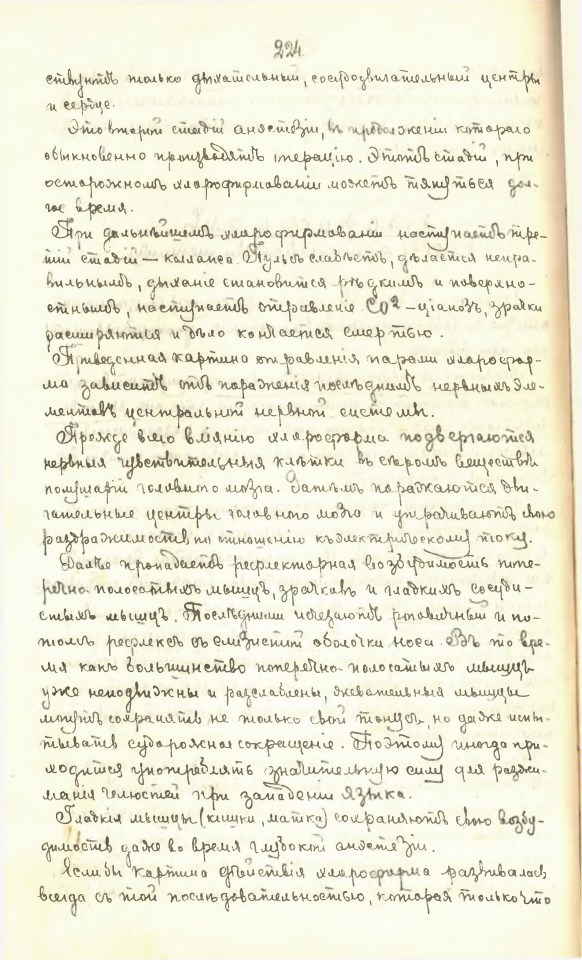 224.
ствуютъ только дыхательный, сосудодвигательный центры
и сердце.
Это второй стадій анэстезіи, въ продолженіи котораго
обыкновенно производятъ операцію. Этотъ стадій, при
осторожномъ хлороформированіи можетъ тянуться дол-
гое время.
При дальнѣйшемъ хлороформированіи наступаетъ тре-
тій стадій — колапса. Пульсъ слабѣетъ, дѣлается непра-
вильнымъ, дыханіе становится рѣдкимъ и поверхно-
стнымъ, наступаетъ отравленіе CO2 – ціанозъ, зрачки
расширяются и дѣло кончается смертью.
Приведенная картина отравленія парами хлорофор-
ма зависитъ отъ пораженія послѣднимъ нервныхъ эле-
ментовъ центральной нервной системы.
Прежде всего вліянію хлороформа подвергаются
нервныя чувствительныя клѣтки въ сѣромъ веществѣ
полушарій головного мозга. Затѣмъ поражаются дви-
гательные центры головного мозга и утрачиваютъ свою
раздражимость по отношенію къ электрическому току.
Далѣе пропадаетъ рефлекторная возбудимость попе-
речно-полосатыхъ мышцъ, зрачковъ и гладкихъ сосуди-
стыхъ мышцъ. Послѣдними исчезаютъ роговичный и по-
томъ рефлексъ съ слизистой оболочки носа. Въ то вре-
мя какъ большинство поперечно-полосатыхъ мышцъ
уже неподвижны и разслаблены, жевательныя мышцы
могутъ сохранять не только свой тонусъ, но даже испы-
тывать судорожное сокращеніе. Поэтому иногда при-
ходится употреблять значительную силу для разжи-
манія челюстей при западеніи языка.
Гладкія мышцы (кишки, матка) сохраняютъ свою возбу-
димость даже во время глубокой анэстезіи.
Если бы картина дѣйствія хлороформа развивалась
всегда съ той послѣдовательностью, которая только что